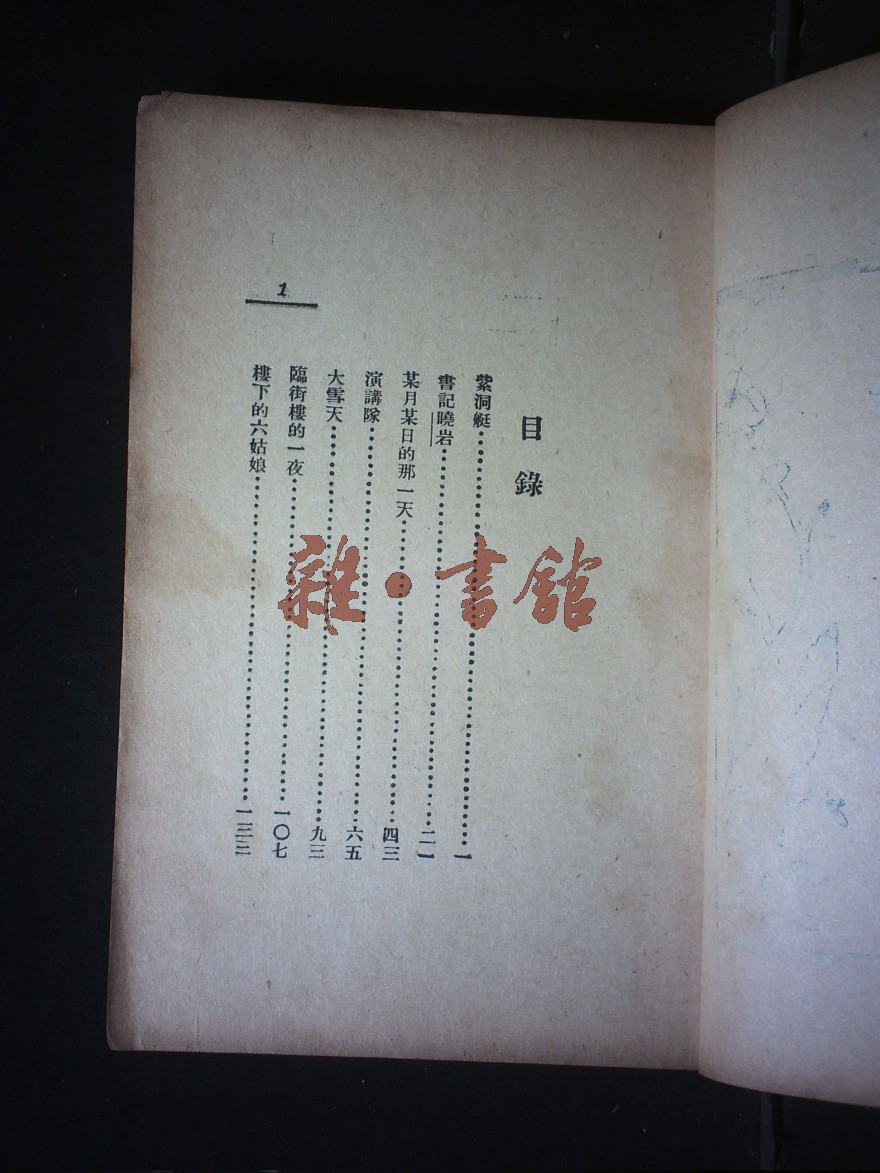 目錄
紫洞艇……一
書記曉岩……二一
某月某日的那一天……四三
演講隊……六五
大雪天……九三
臨街樓的一夜……一〇七
樓下的六姑娘……一三三
1
雜·書館